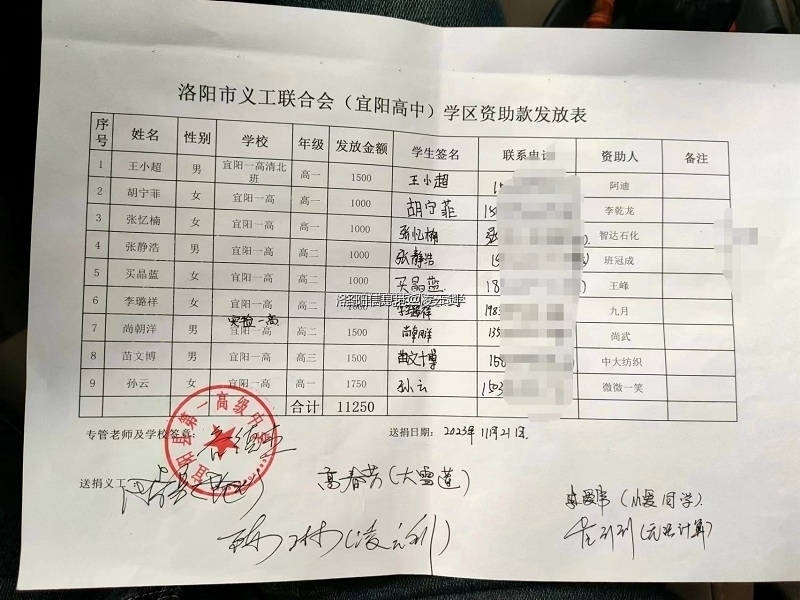 洛阳市义工联合会（宜阳高中）学区资助款发放表
序号 姓名 性别 学校 年级 发放金额 学生签名 联系电话 资助人 备注
1 王小超 男 宜阳一高清北班 高一 1500 王小超 阿迪
2 胡宁菲 女 宜阳一高 高一 1000 胡宁菲 李乾龙
3 张忆楠 女 宜阳一高 高一 1000 张忆楠 智达石化
4 张静浩 男 宜阳一高 高二 1000 张静浩 班冠成
5 买晶蓝 女 宜阳一高 高二 1000 买晶蓝 王峰
6 李璐祥 女 宜阳一高 高二 九月
实验一高
7 尚朝洋 男 宜阳一高 高二 1500 尚武
8 苗文博 男 宜阳一高 高三 1500 苗文博 中大纺织
9 孙云 女 宜阳一高 高一 1750 孙云 微微一笑
合计 11250
专管老师及学校签章：
送捐日期：2023年11月21日.
宜阳县第一高级中学
送捐义工
高春芳（大雪莲）